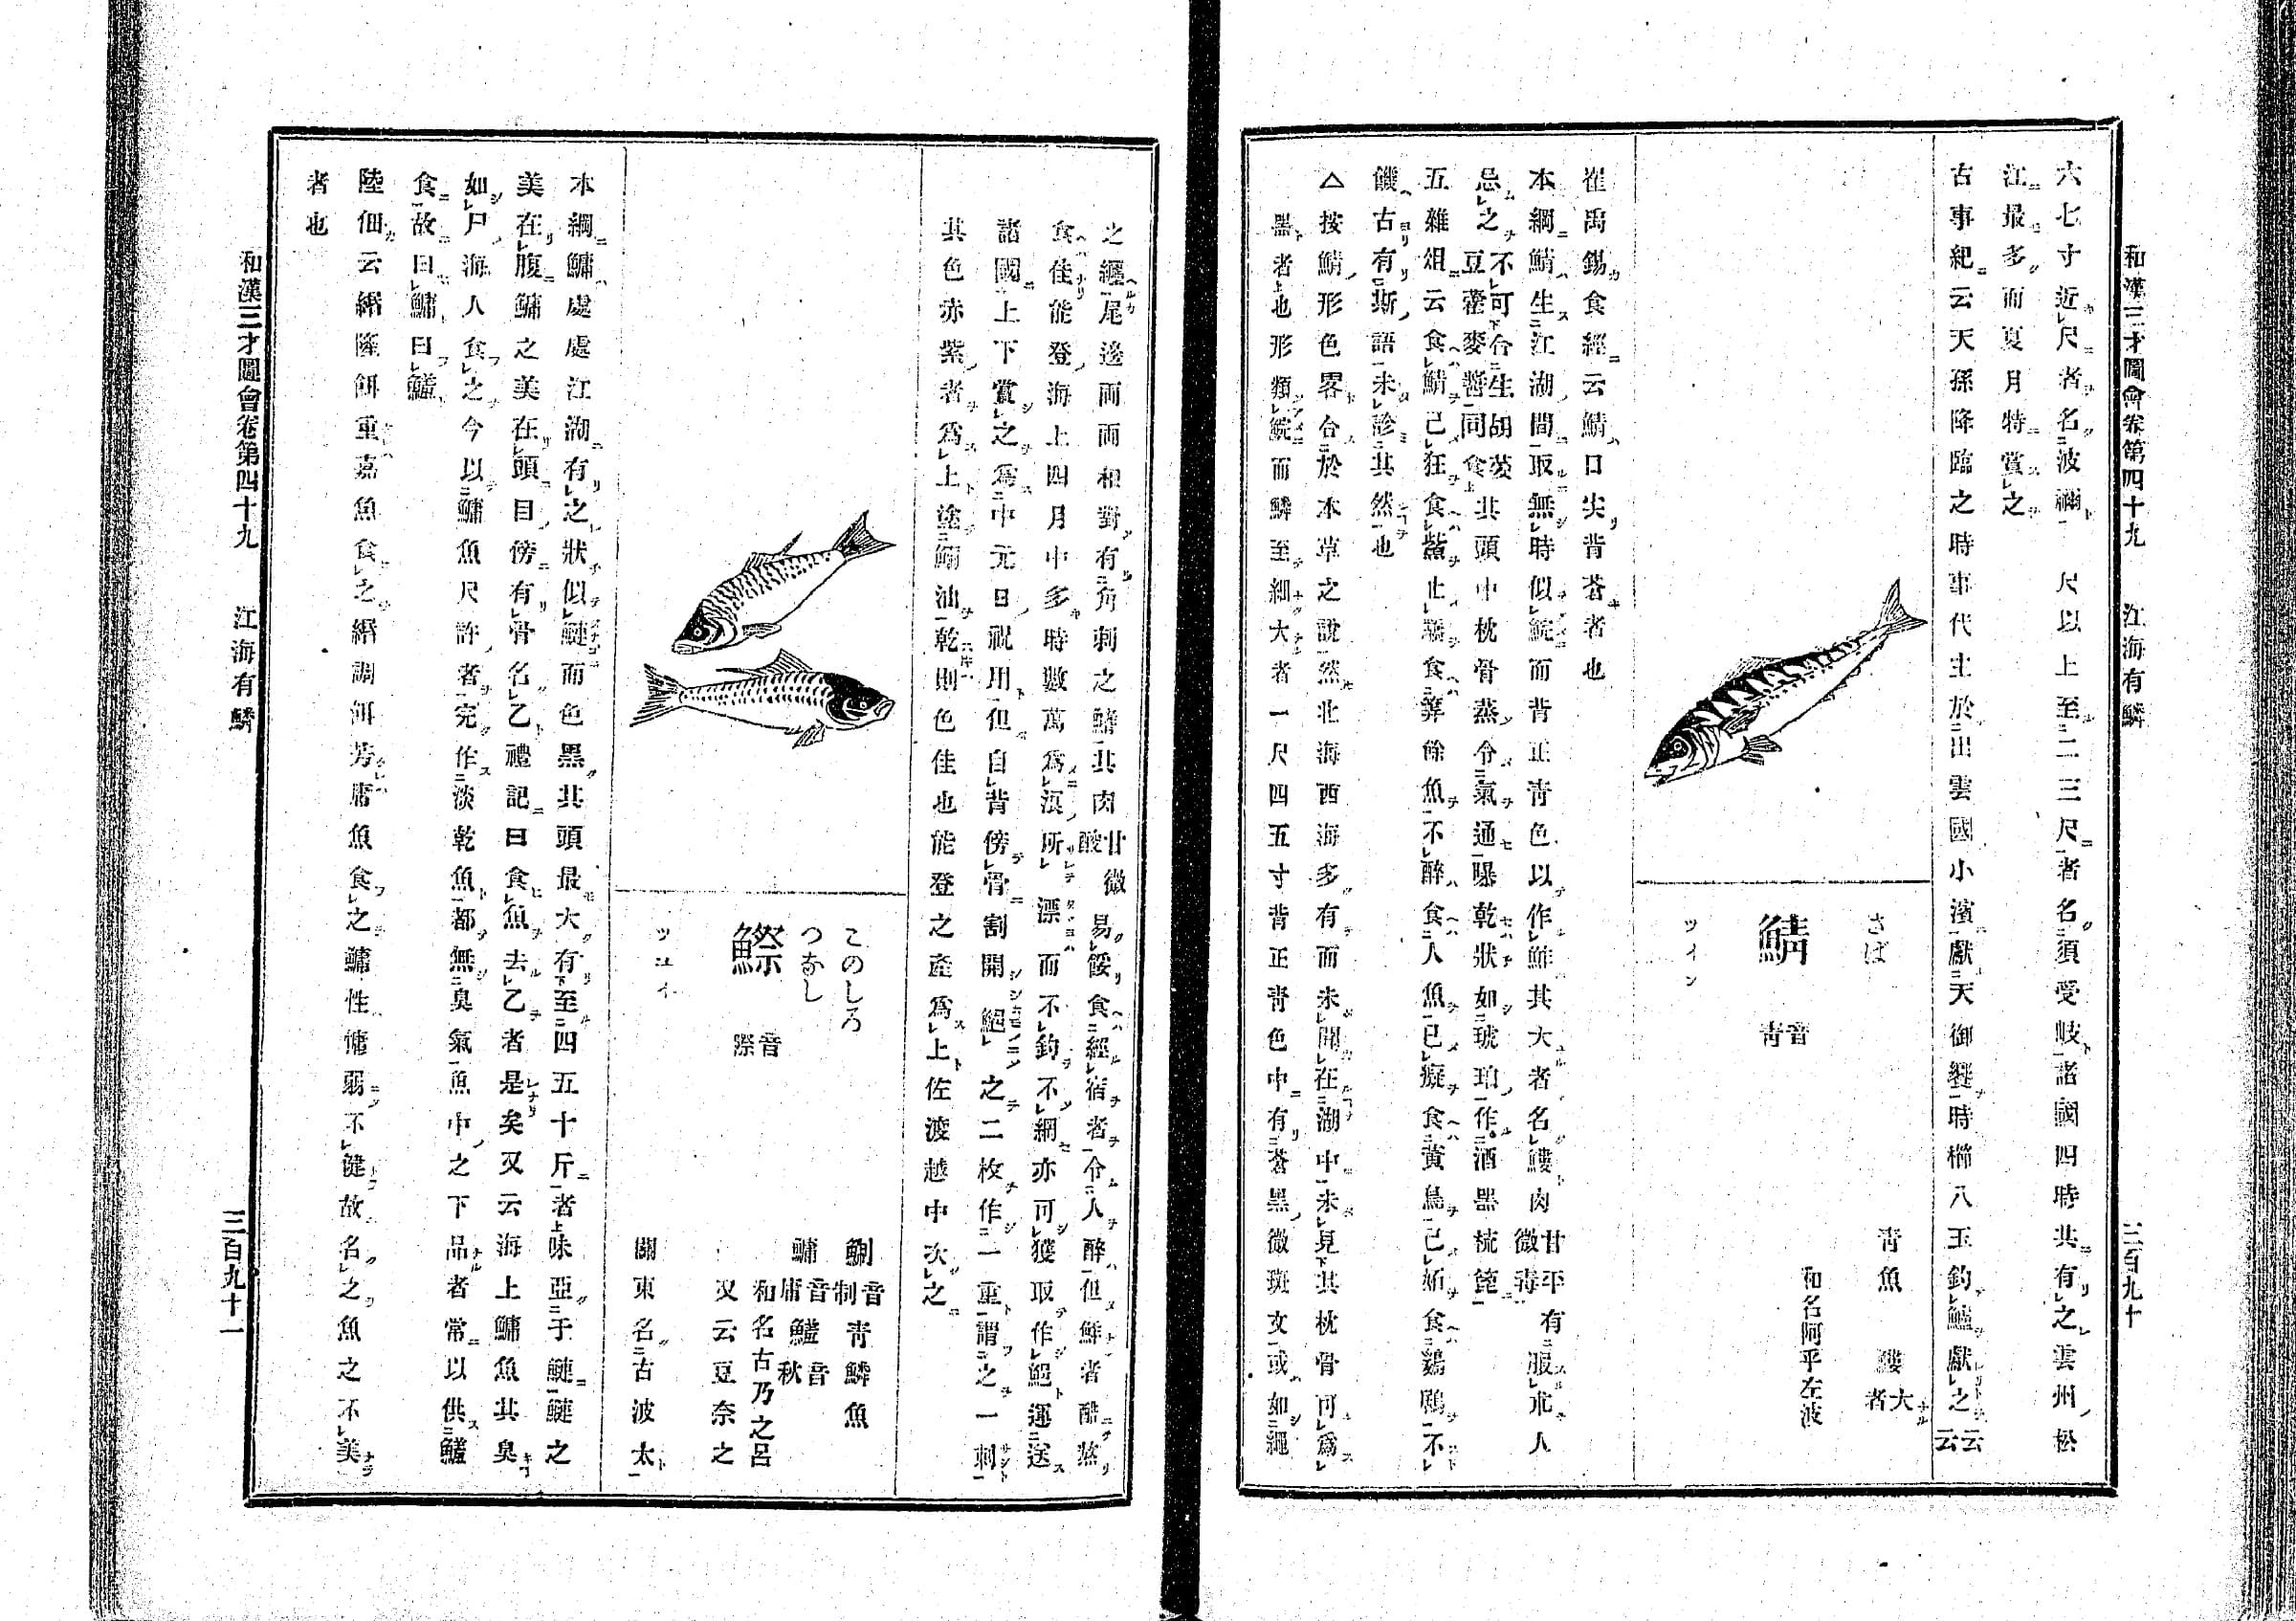 和漢三才圖會卷第四十九 江海有鱗 三百九十
六七寸近尺者名波禰 尺以上至二三尺者名須受岐諸國四時共有之雲州松
江最多而夏月特賞之
古事紀云天孫降臨之時事代主於出雲國小濱獻天御饗時櫛八玉釣鱸獻之云云
さば
鯖 音青
ツイン
青魚 鏤大者
和名阿乎左波
崔禹錫食經云鯖口尖背蒼者也
本綱鯖生江湖間取無時似鯇而背正青色以作鮓其大者名鏤肉甘平有微毒服朮人
忌之不可合生胡荽豆藿麥醬同食其頭中枕骨蒸令氣通曝乾狀如琥珀作酒黑梳篦
五雜俎云食鯖已狂食鮆止驕食箄餘魚不醉食人魚已癡食黃鳥已妬食鷄鶋不
饑古有斯語未診其然也
△按鯖形色畧合於本草之說然北海西海多有而未聞在湖中未見其枕骨可爲
器者也形類鯇而鱗至細大者一尺四五寸背正青色中有蒼黑微斑文或如繩
之纒尾邊兩兩相對有角刺之鰭其肉甘微酸易餒食經宿者令人醉但鮮者醋熬
食佳能登海上四月中多時數萬爲浪所漂而不釣不網亦可獲取作䱒運送
諸國上下賞之爲中元日祝用但自背傍骨割開䱒之二枚作一重謂之一刺
其色赤紫者爲上塗鯛油乾則色佳也能登之產爲上佐渡越中次之
このしろ
つなし
鰶 音際
ツユイ
鯯音制 青鱗魚
鱅音庸 鰌音秋
和名古乃之呂
又云豆奈之
關東名古波太
本綱鱅處處江湖有之狀似鰱而色黑其頭最大有至四五十斤者味亞于鰱鰱之
美在腹鱅之美在頭目傍有骨名乙禮記曰食魚去乙者是矣又云海上鱅魚其臭
如尸海人食之今以鱅魚尺許者完作淡乾魚都無臭氣魚中之下品者常以供饈
食故曰鱅曰鱃
陸佃云緡隆餌重嘉魚食之緡調餌芳庸魚食之鱅性慵弱不健故名之魚之不美
者也
和漢三才圖會卷第四十九 江海有鱗 三百九十一